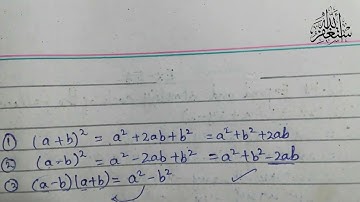 أستغفر الله
① (a+b)² = a²+2ab+b² = a²+b²+2ab
② (a-b)² = a²-2ab+b² = a²+b²-2ab
③ (a-b)(a+b) = a²-b²